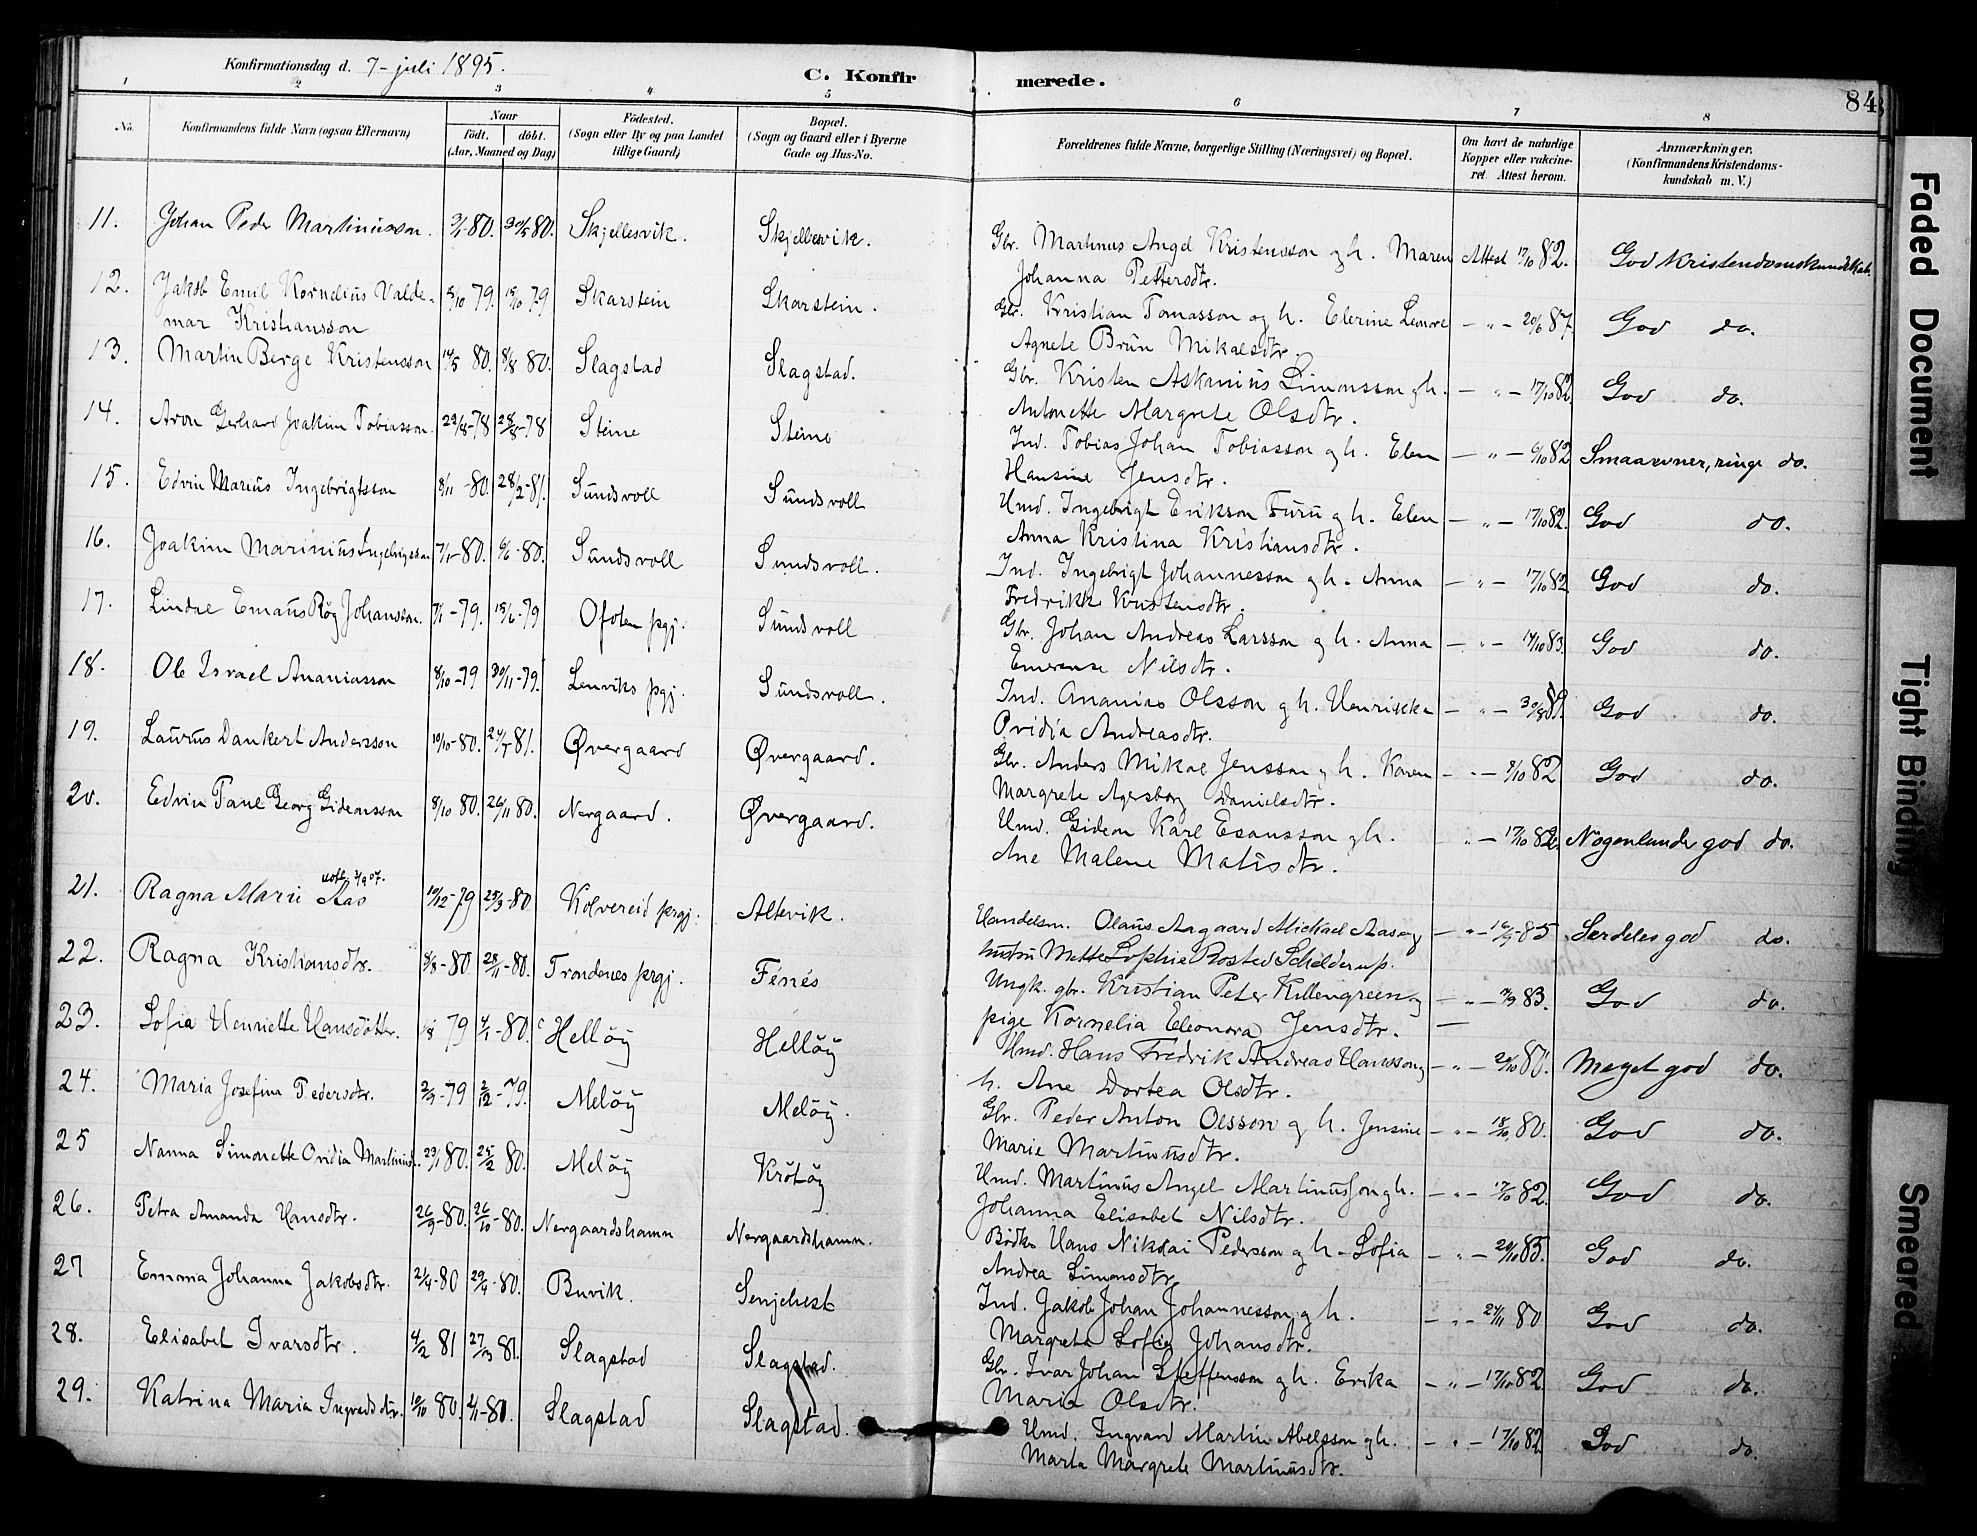 Konfirmationsdag d. 7-juli 1895.
C. Konfirmerede.
84
1 2 3 4 5 6 7 8
No.
Konfirmandens fulde Navn (ogsaa Efternavn)
Naar
födt. döbt.
(Aar, Maaned og Dag)
Födested.
(Sogn eller By og paa Landet
tillige Gaard)
Bopæl.
(Sogn og Gaard eller i Byerne
Gade og Hus-No.
Forældrenes fulde Navne, borgerlige Stilling (Næringsvei) og Bopæl.
Om havt de naturlige
Kopper eller vakcine-
ret. Attest herom.
Anmærkninger.
(Konfirmandens Kristendoms-
kundskab m. V.)
11. Johan Peder Martinusson. -80. 30/5 80. Skjellesvik. Skjellesvik. Gbr. Martinus Angel Kristensson og h. Maren Attest 17/10 82. God Kristendomskundskab
Johanna Pettersdtr.
12. Jakob Emil Kornelius Valde- 79. 79 Skarstein Skarstein. Gbr. Kristian Tomasson og h. Elerine Lenore - " - 20/6 87. God do.
mar Kristiansson Agnete Brün Mikalsdtr.
13. Martin Berge Kristensson 14/5 80. 8/8 80. Slagstad Slagstad. Gbr. Kristen Askanius Simonsson og h. - " - 17/10 82. God do.
Antonette Margrete Olsdtr.
14. Aron Gerhard Joakim Tobiasson. 22/8-78 28/8-78 Steine Steine Ind. Tobias Johan Tobiasson og h. Elen - " - 6/10 82 Smaaevner, ringe do.
Hansine Jensdtr.
15. Edvin Marius Ingebrigtsson 8/11 -80. 28/2-81. Sundsvoll Sundsvoll Umd. Ingebrigt Erikson Furu og h. Elen - " - 17/10 82. God do.
Anna Kristina Kristiansdtr.
16. Joakim Marinius Ingebrigtsson -80. 6/6-80. Sundsvoll Sundsvoll. Ind. Ingebrigt Johannesson og h. Anna - " - 17/10 82. God do.
Fredrikke Kristensdtr.
17. Emaus Røg Johansson. 7/1-79. 15/6-79 Ofoten pgj. Sundsvoll Gbr. Johan Andreas Larsson og h. Anna - " - 83. God do.
Emerense Nilsdtr.
18. Ole Israel Ananiasson 8/10-79 30/11-79. Lenviks pgj. Sundsvoll. Ind. Ananias Olsson og h. Henrikke - " - 30/8 89. God do.
Ovidia Andreasdtr.
19. Laurus Dankert Andersson 10/10-80. 81. Øvergaard Øvergaard. Gbr. Anders Mikal Jensson og h. Karen - " - 9/10 82 God do.
Margrete Agersborg Danielsdtr.
20. Edvin Paul Georg Gideonsson 8/10 80. 26/11 80. Nergaard. Øvergaard. Umd. Gideon Karl Esausson og h. - " - 17/10 82. Nogenlunde god do.
Ane Malene Matisdtr.
21. Ragna Marie Aas 10/12-79 25/3-80 Kolvereid prgj. Altevik. Handelsm. Olaus Aagaard Michael Aas og - " - 85 Særdeles god do.
hustru Mette Sophie Rosted Schelderup.
22. Ragna Kristiansdtr. 8/8-80 28/11-80. Trondenes prgj. Fenes Ungk. gbr. Kristian Peter Killengreen og - " - 83. God do.
pige Kornelia Eleonora Jensdtr.
23. Sofia Henriette Hansdötter. 79 4/1-80. Hellöy Hellöy Umd. Hans Fredrik Andreas Hansson og - " - 20/10 80. Meget god do.
h. Ane Dortea Olsdtr.
24. Maria Josefina Pedersdtr. 2/9-79 2/12-79. Melöy Melöy. Gbr. Peder Anton Olsson og h. Jensine - " - 18/10 80. God do.
Marie Martinusdtr.
25 Nanna Simonette Ovidia Martinusd. 29/1 80. 25/2 80. Melöy Krötöy Umd. Martinus Angel Martinusson og h. - " - 17/10 82. God do.
Johanna Elisabet Nilsdtr.
26. Petra Amanda Hansdtr. 26/9-80. 26/10-80. Nergaardshamn Nergaardshamn. Bödker Hans Nikolai Pedersson og h. Sofia - " - 20/10 85. God do.
Andrea Simonsdtr.
27 Emma Johanna Jakobsdtr. 21/4-80 29/4-80. Buvik. Senjehest Ind. Jakob Johan Johannesson og h. - " - 24/11 80 God do.
Margreta Sofie Johansdtr.
28. Elisabet Ivarsdtr. 4/2 81 27/3 81. Slagstad Slagstad. Gbr. Ivar Johan Steffensson og h. Erika - " - 17/10 82. God do.
Maria Olsdtr.
29. Katrina Maria Ingvardsdtr. 10/10 80. 4/11-80. Slagstad Slagstad. Umd. Ingvard Martin Abelsson og h. - " - 17/10 82. God do.
Marta Margrete Martinusdtr.
Faded Document
Tight Binding
Smeared